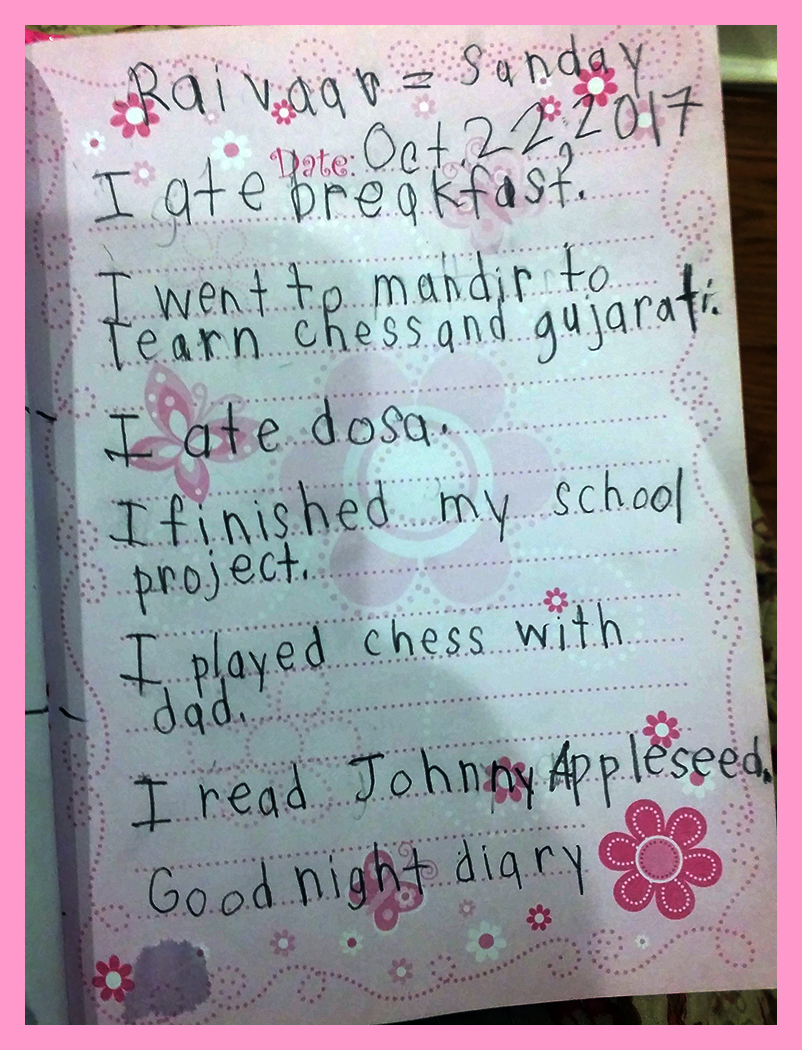 Raivaar = Sanday
Date: Oct. 22, 2017
I ate breakfast.
I went to mandir to
learn chess and gujarati.
I ate dosa.
I finished my school
project.
I played chess with
dad.
I read Johnny Appleseed.
Good night diary